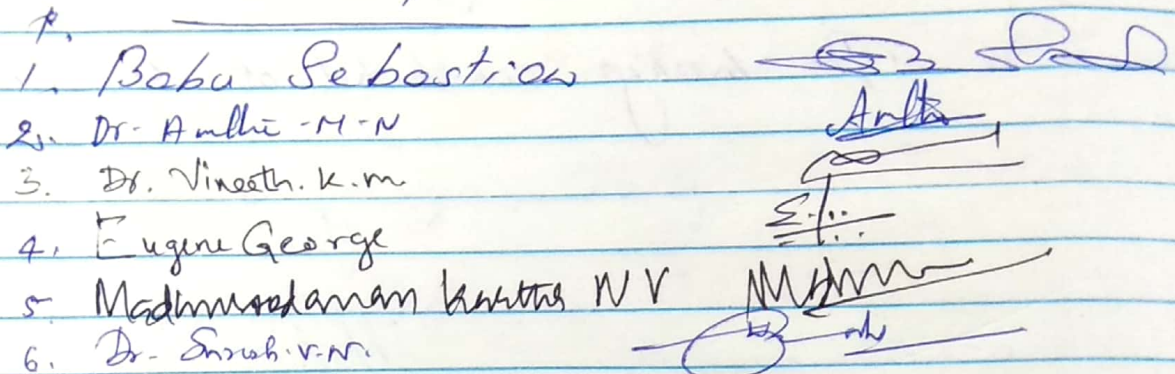 1. Babu Sebastian
2. Dr. Amlhi - M - N Anlhi
3. Dr. Vineeth. K. m
4. Eugene George
5. Madhusoodanan Kartha N V
6. Dr. Suresh. V. N.